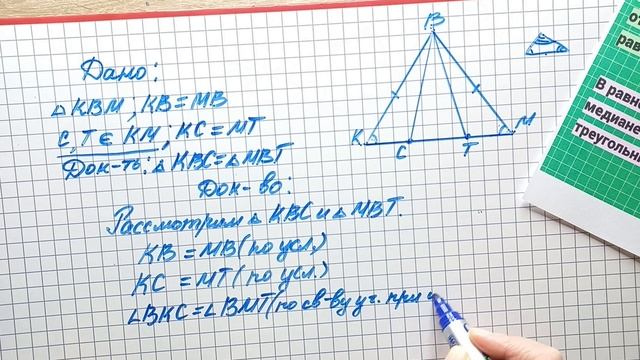 Дано:
△ KBM; KB = MB
C, T ∈ KM; KC = MT
Док-ть: △ KBC = △ MBT
Док-во:
Рассмотрим △ KBC и △ MBT.
KB = MB (по усл.)
KC = MT (по усл.)
∠BKC = ∠BMT (по св-ву уг. при
B
K
C
T
M
рав
В равн
медиан
треугольн